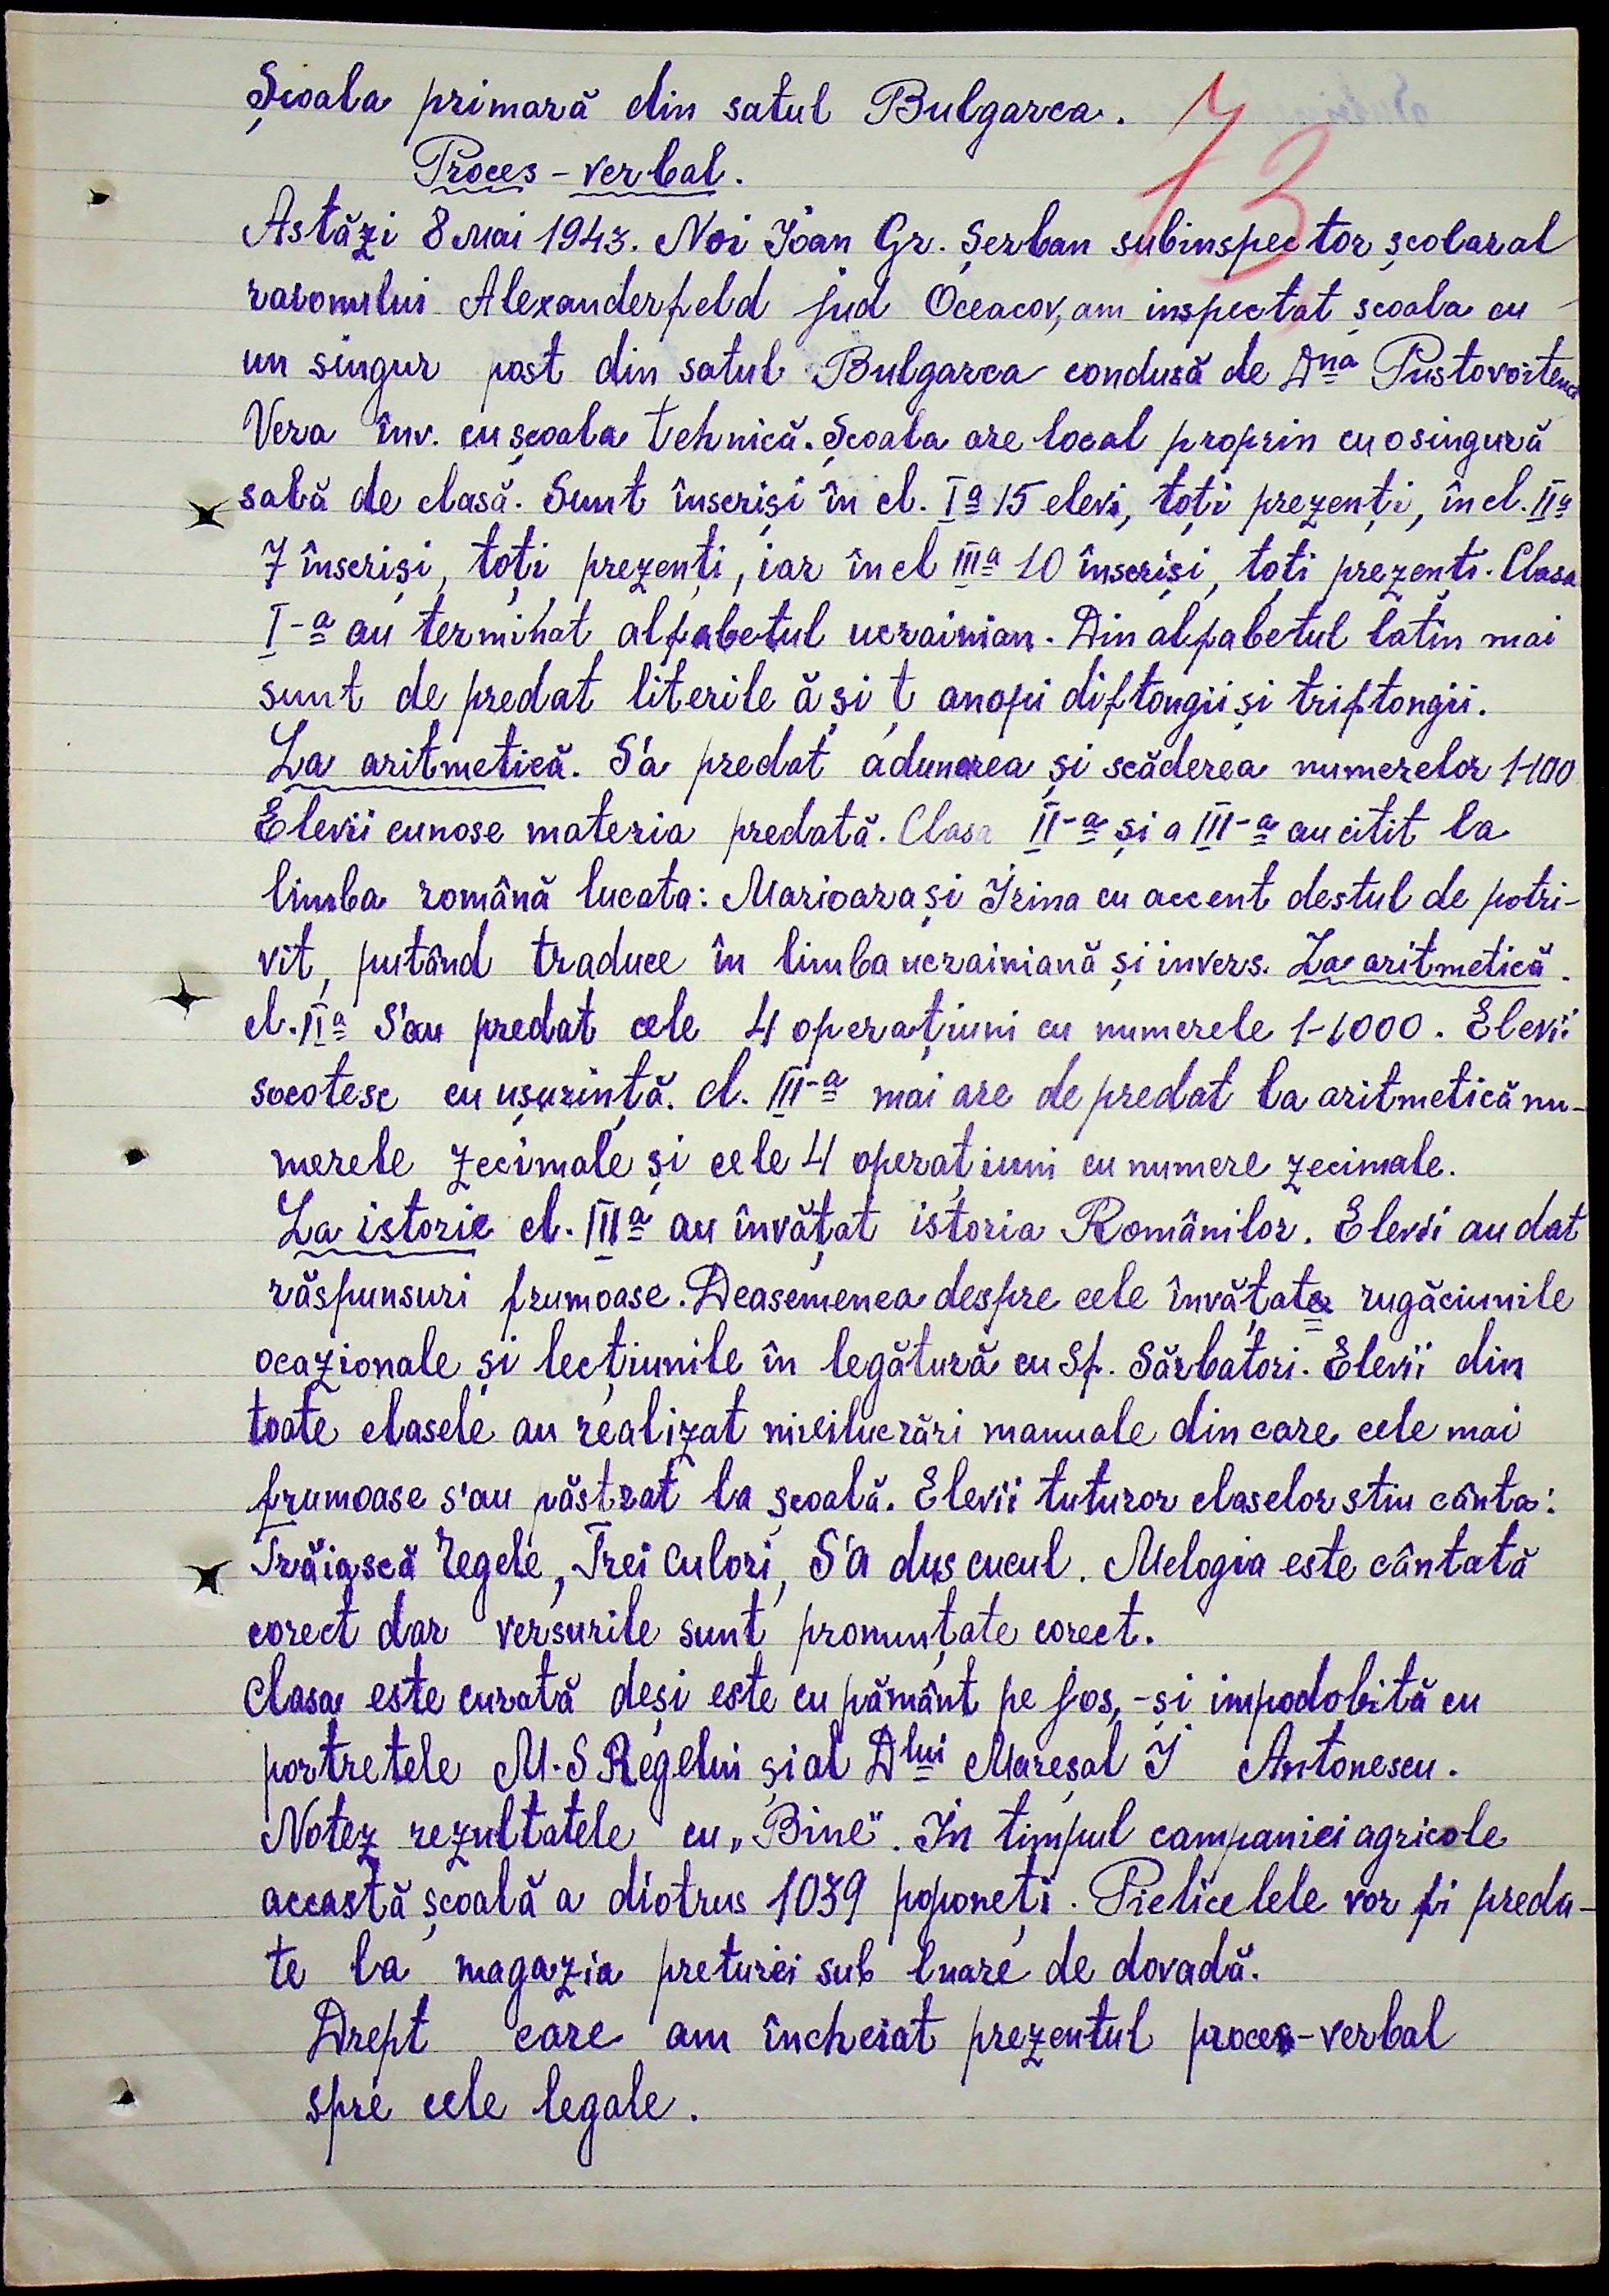 Școala primară din satul Bulgarca.
73
Proces-verbal.
Astăzi 8 Mai 1943. Noi Ioan Gr. Șerban subinspector școlar al
raionului Alexanderfeld jud Oceacov, am inspectat școala cu
un singur post din satul Bulgarca condusă de Dna
Vera înv. cu școala tehnică. Școala are local propriu cu o singură
sală de clasă. Sunt înscriși în cl. I a 15 elevi, toți prezenți, în cl. II a
7 înscriși, toți prezenți, iar în cl III a 10 înscriși, toți prezenți. Clasa
I-a au terminat alfabetul ucrainian. Din alfabetul latin mai
sunt de predat literile ă și ț anopii diftongii și triftongii.
La aritmetică. S'a predat adunarea și scăderea numerelor 1-100
Elevii cunosc materia predată. Clasa II-a și a III-a au citit la
limba română lucata: Marioara și Irina cu accent destul de potri-
vit, putând traduce în limba ucrainiană și invers. La aritmetică.
cl. II a S'au predat cele 4 operațiuni cu numerele 1-1000. Elevii
socotesc cu ușurință. cl. III-a mai are de predat la aritmetică nu-
merele zecimale și cele 4 operațiuni cu numere zecimale.
La istorie cl. III a au învățat istoria Românilor. Elevii au dat
răspunsuri frumoase. Deasemenea despre cele învățate rugăciunile
ocazionale și lecțiunile în legătură cu Sf. Sărbatori. Elevii din
toate clasele au realizat mici lucrări manuale din care cele mai
frumoase s'au păstrat la școală. Elevii tuturor claselor stiu cânta:
Trăiască Regele, Trei Culori, S'a dus cucul. Melogia este cântată
corect dar versurile sunt pronunțate corect.
Clasa este curată deși este cu pământ pe jos, -și impodobită cu
portretele M.S Regelui și al Dlui Mareșal I Antonescu.
Notez rezultatele cu „Bine". In timpul campaniei agricole
această școală a distrus 1039 poponeți. Pielicelele vor fi preda-
te la magazia preturei sub luare de dovadă.
Drept care am încheiat prezentul proces-verbal
spre cele legale.